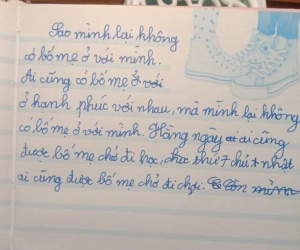 Sao mình lại không
có bố mẹ ở với mình.
Ai cũng có bố mẹ ở với
ở hạnh phúc với nhau, mà mình lại không
có bố mẹ ở với mình. Hàng ngày ai ai cũng
được bố mẹ chở đi học, thứ 7 chủ nhật
ai cũng được bố mẹ chở đi chơi. Còn mình